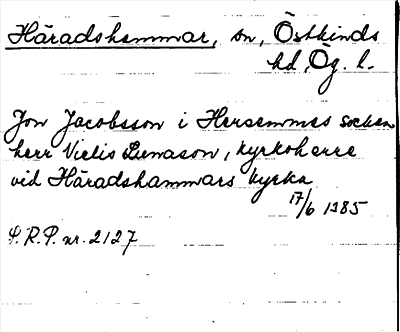 Häradshammar, sn, Östkinds
hd, Ög. l.
Jon Jacobsson i Hersemmes socken
herr Vielis Lunason, kyrkoherre
vid Häradshammars kyrka
17/6 1385
S.R.P. nr. 2127